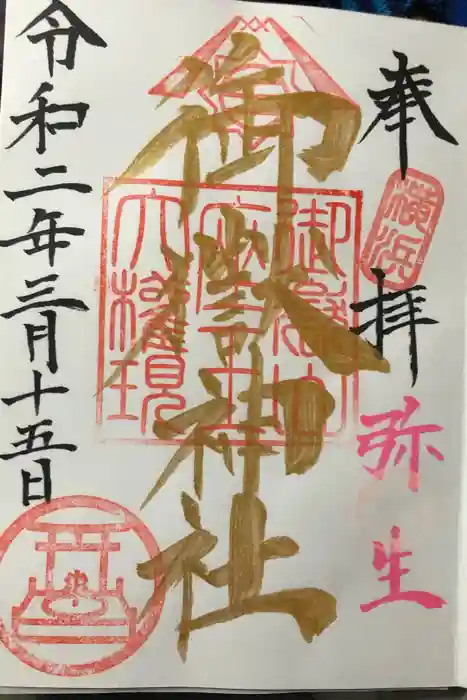 奉拝
横浜
弥生
御嶽神社
大権現
令和二年三月十五日